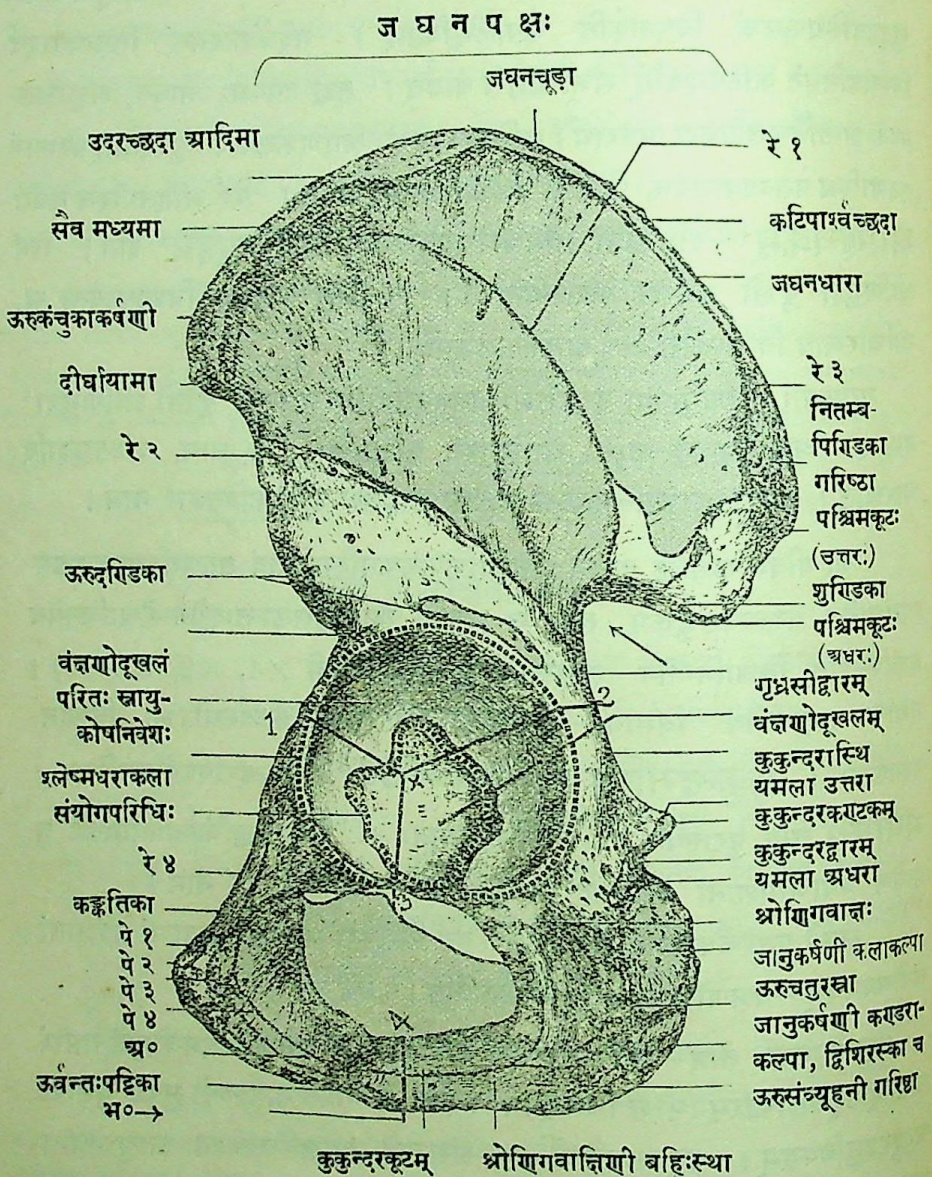 जघनपक्षः
जघनचूड़ा
उदरच्छदा आदिमा
सैव मध्यमा
ऊरुकंचुकाकर्षणी
दीर्घायामा
रे २
ऊरुदण्डिका
वंक्षणोदूखलं
परितः स्नायु-
कोषनिवेशः
श्लेष्मधराकला
संयोगपरिधिः
रे ४
कङ्कतिका
पे १
पे २
पे ३
पे ४
अ०
ऊर्वन्तःपट्टिका
भ०→
रे १
कटिपार्श्वच्छदा
जघनधारा
रे ३
नितम्ब-
पिण्डिका
गरिष्ठा
पश्चिमकूटः
(उत्तरः)
शुण्डिका
पश्चिमकूटः
(अधरः)
गृध्रसीद्वारम्
वंक्षणोदूखलम्
कुकुन्दरास्थि
यमला उत्तरा
कुकुन्दरकण्टकम्
कुकुन्दरद्वारम्
यमला अधरा
श्रोणिगवाक्षः
जानुकर्षणी कलाकल्पा
ऊरुचतुरस्रा
जानुकर्षणी कण्डरा-
कल्पा, द्विशिरस्का च
ऊरुसंव्यूहनी गरिष्ठा
1
2
x
3
4
कुकुन्दरकूटम्
श्रोणिगवाक्षिणी बहिःस्था